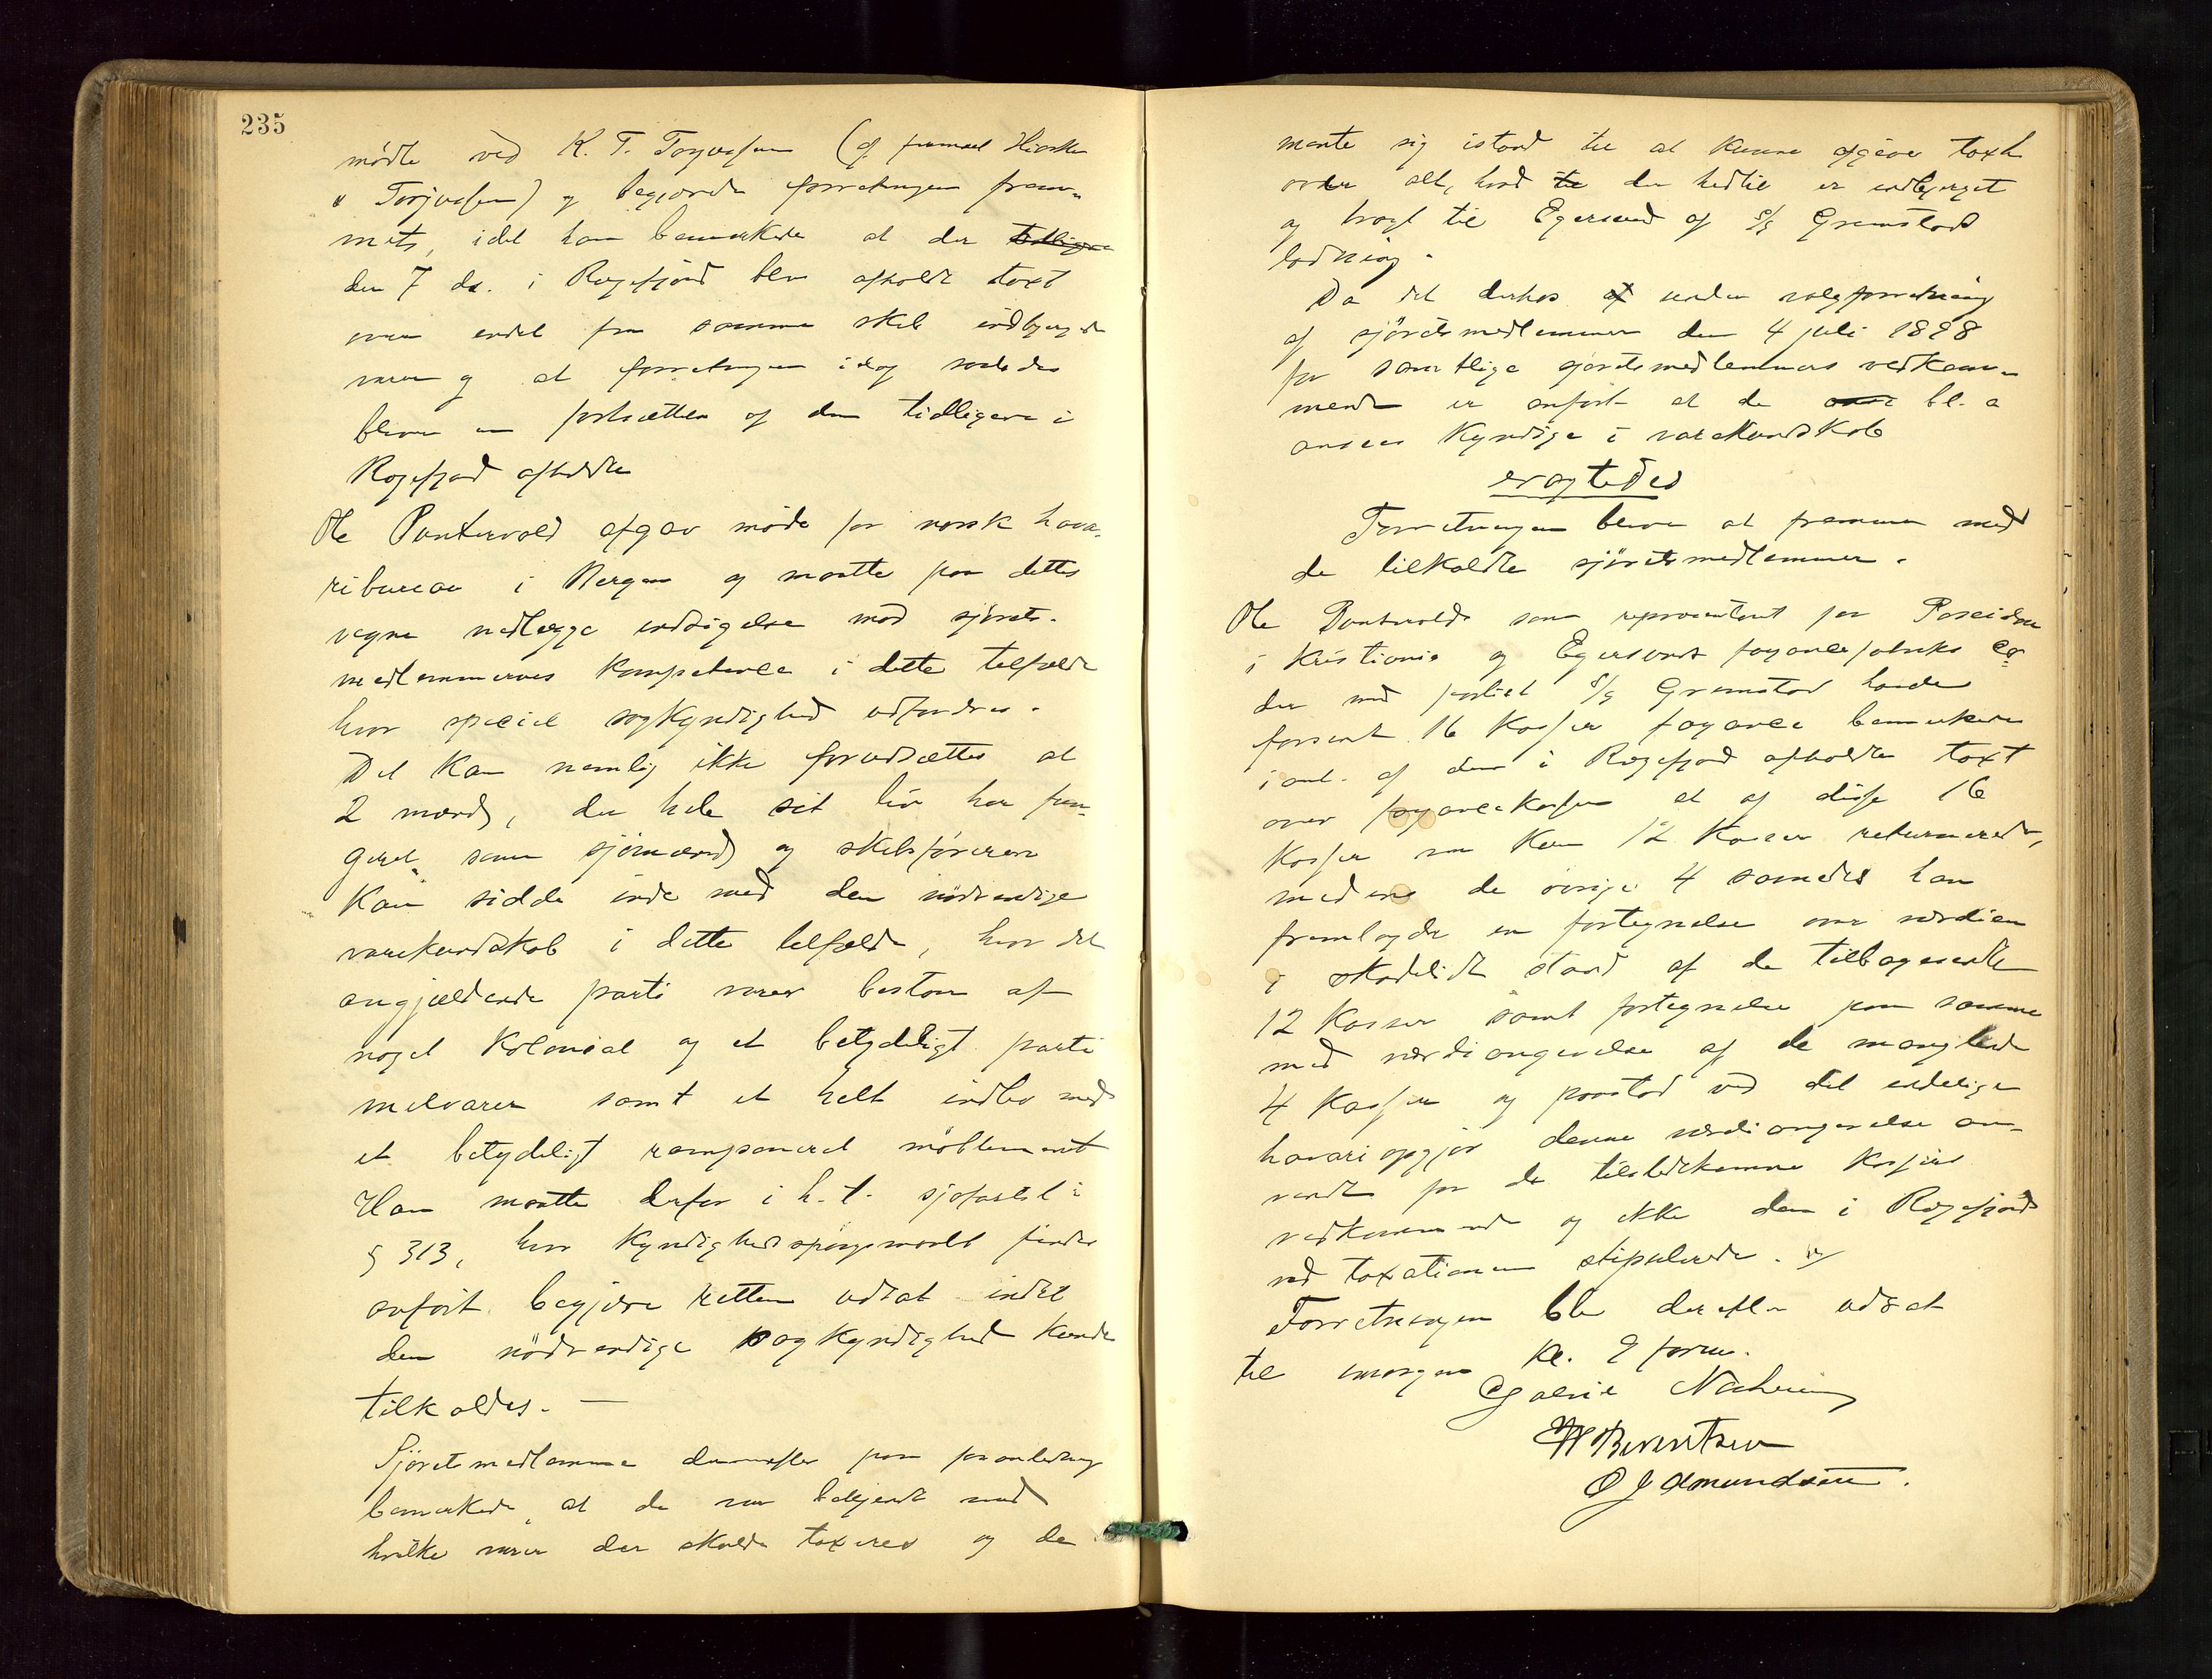 235
mødte ved K. T. Torjusen (af firmaet
" Torjusen) og begjærede forretningen frem-
met, idet han bemærkede at der tidligere
den 7 ds. i Rægefjord blev afholdt taxt
over endel fra samme skib indbjergede
varer og at forretningen idag saaledes
bliver en fortsættelse af den tidligere i
Rægefjord afholdte
Ole Puntervold afgav møde for norsk hava-
ribureau i Bergen og maatte paa dettes
vegne nedlægge indsigelse mod sjørets-
medlemmernes kompetence i dette tilfælde
hvor speciel sagkyndighed udfordres.
Det kan nemlig ikke forudsættes at
2 mænd, der hele sit liv har fun-
geret som sjømænd og skibsførere
kan sidde inde med den nødvendige
varekundskab i dette tilfælde, hvor det
angjældende parti varer bestaar af
noget Kolonial og et betydeligt parti
melvarer samt et helt indbo med
et betydeligt ramponeret møblement
Han maatte derfor i h. t. sjøfartsl i
§ 313, hvor kyndighedsspørgsmaalet findes
anført begjære retten udsat indtil
den nødvendige sagkyndighed kunde
tilkaldes. —
Sjøretsmedlemmene paa foranledning
bemærkede, at de var bekjendt med
hvilke varer der skulde taxeres og de
mente sig istand til at kunne afgive taxt
over alt, hvad til der hidtil er indbjerget
og bragt til Egersund af s/s Grimstad
ladning.
Da det derhos af under valgforretning
af sjøretsmedlemmer den 4 juli 1898
for samtlige sjøretsmedlemmers vedkom-
mende er anført at de bl. a
ansees kyndige i varekundskab
eragtedes
Forretningen bliver at fremme med
de tilkaldte sjøretsmedlemmer.
Ole Puntervold som repræsentant for Poseidon
i Kristiania og Egersunds fayancefabriks Co
der med forlist s/s Grimstad havde
forsendt 16 Kasser fayance bemærkede
i anl. af den i Rægefjord afholdte taxt
over fayancekasser at af disse 16
Kasser var kun 12 Kasser returnerede,
medens de øvrige 4 savnedes han
fremlagde en fortegnelse over værdien
i skadelidt stand af de tilbagesendte
12 Kasser samt fortegnelse paa samme
med værdiangivelse af de manglende
4 Kasser og paastod ved det endelige
havariopgjør denne værdiangivelse an-
vendt for de tilstedekomne Kassers
vedkommende og ikke den i Rægefjord
ved taxationen stipulerede.
Forretningen blev derefter udsat
til imorgen kl. 9 form.
O J Omundsen.